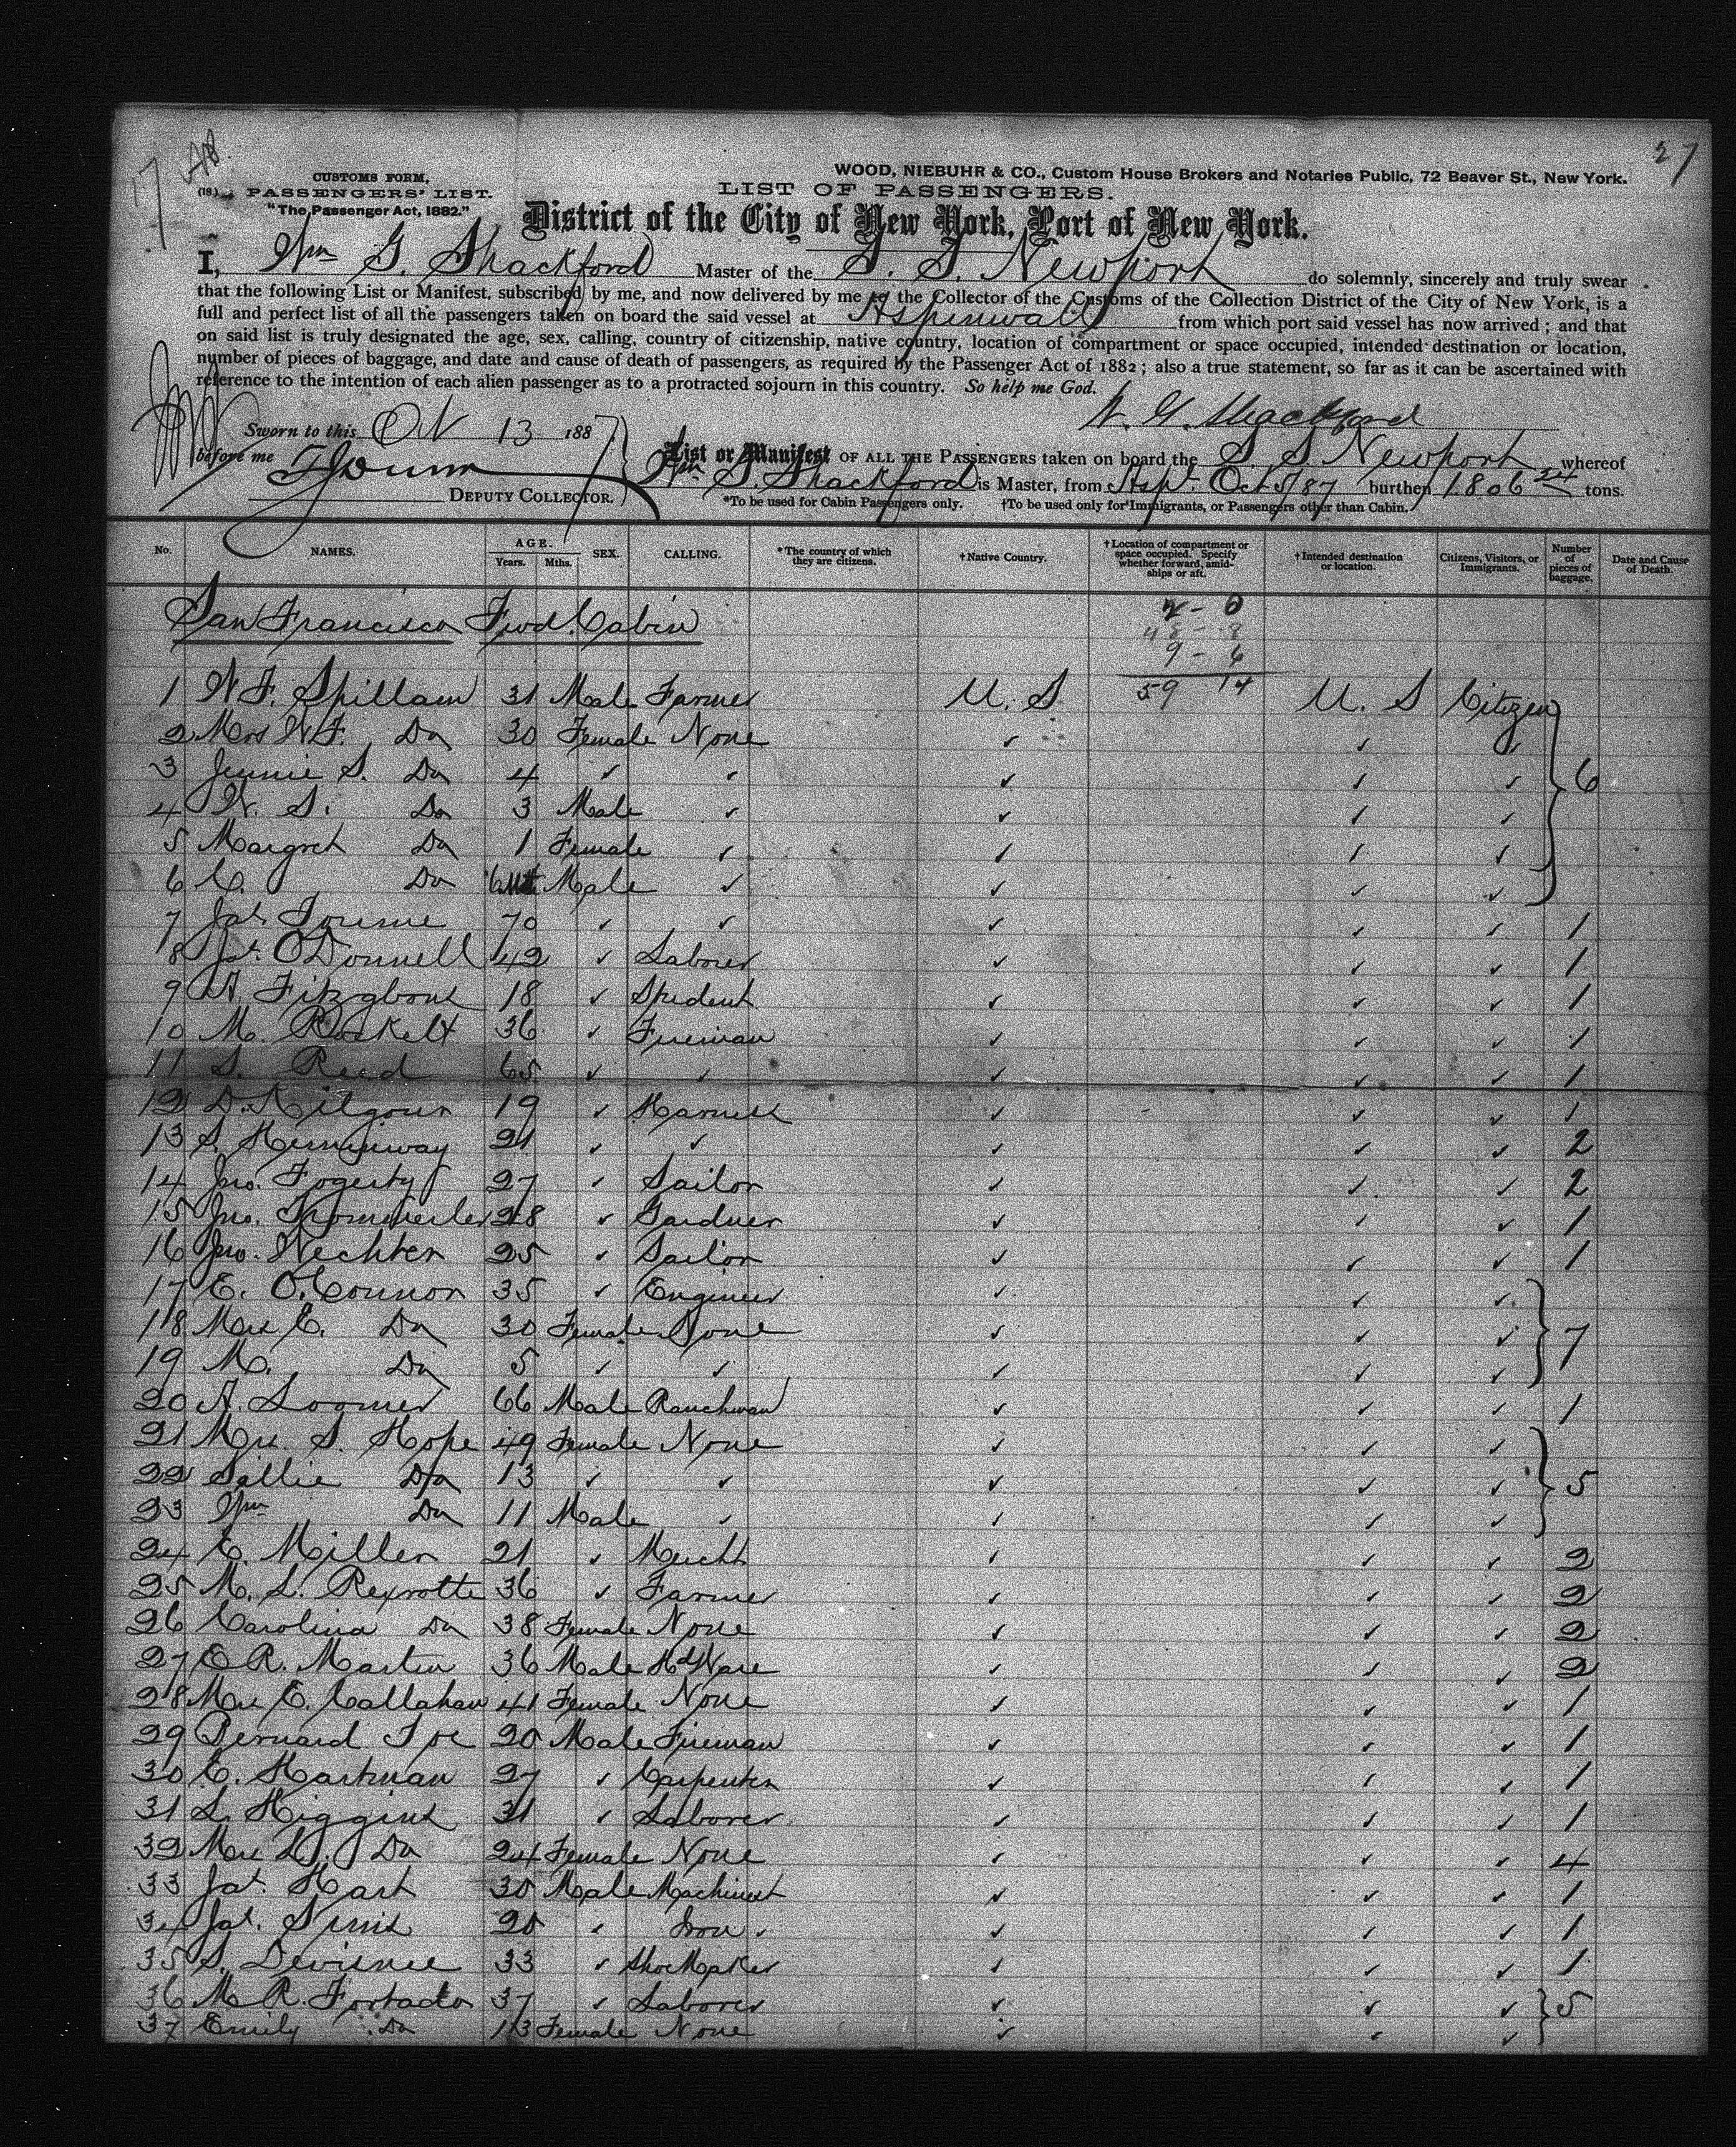 27
WOOD, NIEBUHR & CO., Custom House Brokers and Notaries Public, 72 Beaver St., New York.
CUSTOMS FORM,
(18) PASSENGERS' LIST.
"The Passenger Act, 1882."
LIST OF PASSENGERS.
District of the City of New York, Port of New York.
I, Wm G. Shackford Master of the S. S. Newport do solemnly, sincerely and truly swear
that the following List or Manifest, subscribed by me, and now delivered by me to the Collector of the Customs of the Collection District of the City of New York, is a
full and perfect list of all the passengers taken on board the said vessel at Aspinwall from which port said vessel has now arrived; and that
on said list is truly designated the age, sex, calling, country of citizenship, native country, location of compartment or space occupied, intended destination or location,
number of pieces of baggage, and date and cause of death of passengers, as required by the Passenger Act of 1882; also a true statement, so far as it can be ascertained with
reference to the intention of each alien passenger as to a protracted sojourn in this country. So help me God.
W. G. Shackford
Sworn to this Oct 13 1887
before me
DEPUTY COLLECTOR.
List or Manifest OF ALL THE PASSENGERS taken on board the S. S Newport whereof
Wm G. Shackford is Master, from Aspl Oct 5/87 burthen 1806 24 tons.
*To be used for Cabin Passengers only. †To be used only for Immigrants, or Passengers other than Cabin.
No. NAMES. AGE. Years. Mths. SEX. CALLING. *The country of which they are citizens. †Native Country. †Location of compartment or space occupied. Specify whether forward, amidships or aft. †Intended destination or location. Citizens, Visitors, or Immigrants. Number of pieces of baggage. Date and Cause of Death.
San Francisco Fwd. Cabin
2 - 0
48 - 8
9 - 6
59 14
1 W. F. Spillam 31 Male Farmer U. S U. S Citizen
2 Mrs W. F. Do 30 Female None ✓ ✓ ✓
3 Jennie S. Do 4 ✓ ✓ ✓ ✓ ✓ 6
4 W. S. Do 3 Male ✓ ✓ ✓ ✓
5 Margret Do 1 Female ✓ ✓ ✓ ✓
6 C. Do 6 Mth Male ✓ ✓ ✓ ✓
7 Jas. 70 ✓ ✓ ✓ ✓ ✓ 1
8 Jas. O'Donnell 42 ✓ Laborer ✓ ✓ ✓ 1
9 18 ✓ Student ✓ ✓ ✓ 1
10 M. 36 ✓ Fireman ✓ ✓ ✓ 1
11 S. Reed 65 ✓ ✓ ✓ ✓ ✓ 1
12 D. Kilgour 19 ✓ Harness ✓ ✓ ✓ 1
13 S. Hemmway 21 ✓ ✓ ✓ ✓ ✓ 2
14 Jno. Fogerty 27 ✓ Sailor ✓ ✓ ✓ 2
15 Jno. 28 ✓ Gardner ✓ ✓ ✓ 1
16 Jno. Wechter 25 ✓ Sailor ✓ ✓ ✓ 1
17 E. O'Connor 35 ✓ Engineer ✓ ✓ ✓
18 Mrs E. Do 30 Female None ✓ ✓ ✓ 7
19 M. Do 5 ✓ ✓ ✓ ✓ ✓
20 A. Loomer 66 Male Ranchman ✓ ✓ ✓ 1
21 Mrs. S. Hope 49 Female None ✓ ✓ ✓
22 Sallie Do 13 ✓ ✓ ✓ ✓ ✓ 5
23 Wm Do 11 Male ✓ ✓ ✓ ✓
24 E. Miller 21 ✓ Mercht ✓ ✓ ✓ 2
25 M. L. Rexrotte 36 ✓ Farmer ✓ ✓ ✓ 2
26 Carolina Do 38 Female None ✓ ✓ ✓ 2
27 E R. Martin 36 Male Hd Ware ✓ ✓ ✓ 2
28 Mrs C. Callahan 41 Female None ✓ ✓ ✓ 1
29 Bernard 20 Male Fireman ✓ ✓ ✓ 1
30 C. Hartman 27 ✓ Carpenter ✓ ✓ ✓ 1
31 L. Higgins 31 ✓ Laborer ✓ ✓ ✓ 1
32 Mrs L. Do 24 Female None ✓ ✓ ✓ 4
33 Jas. Hart 30 Male Machinist ✓ ✓ ✓ 1
34 Jas. Sims 20 ✓ Iron ✓ ✓ ✓ ✓ 1
35 S. Devisnee 33 ✓ Shoe Maker ✓ ✓ ✓ 1
36 M R. Fortado 37 ✓ Laborer ✓ ✓ ✓ 5
37 Emily Do 13 Female None ✓ ✓ ✓